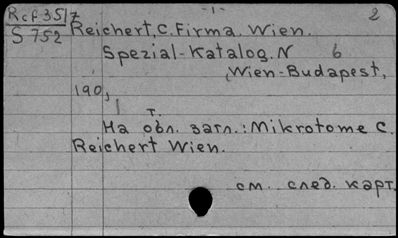 -1-
2
Rcf 35/7
S 752
Reichert, C. Firma. Wien.
Spezial-Katalog. N 6
Wien-Budapest,
190,
т.
На обл. загл.: Mikrotome C.
Reichert Wien.
см. след. карт.